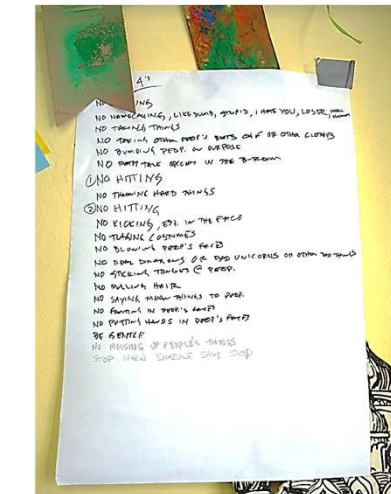 4's
NO
NO NAMECALLING, LIKE DUMB, STUPID, I HATE YOU, LOSER,
NO TAKING THINGS
NO TAKING OTHER PEEP'S BOOTS OFF OR OTHER CLOTHES
NO BUMPING PEOP. ON PURPOSE
NO POTTY TALK EXCEPT IN THE BATHROOM
① NO HITTING
NO THROWING HARD THINGS
② NO HITTING
NO KICKING, ESP. IN THE FACE
NO TEARING COSTUMES
NO BLOWING PEEP'S FACES
NO MEAN DRAGONS OR BAD UNICORNS OR OTHER BAD THINGS
NO STICKING TONGUES @ PEOP.
NO PULLING HAIR
NO SAYING MEAN THINGS TO PEOP.
NO FARTING IN PEOP'S FACES
NO PUTTING HANDS IN PEEP'S FACES
BE GENTLE
NO MESSING UP PEOPLE'S THINGS
STOP WHEN SOMEONE SAYS STOP